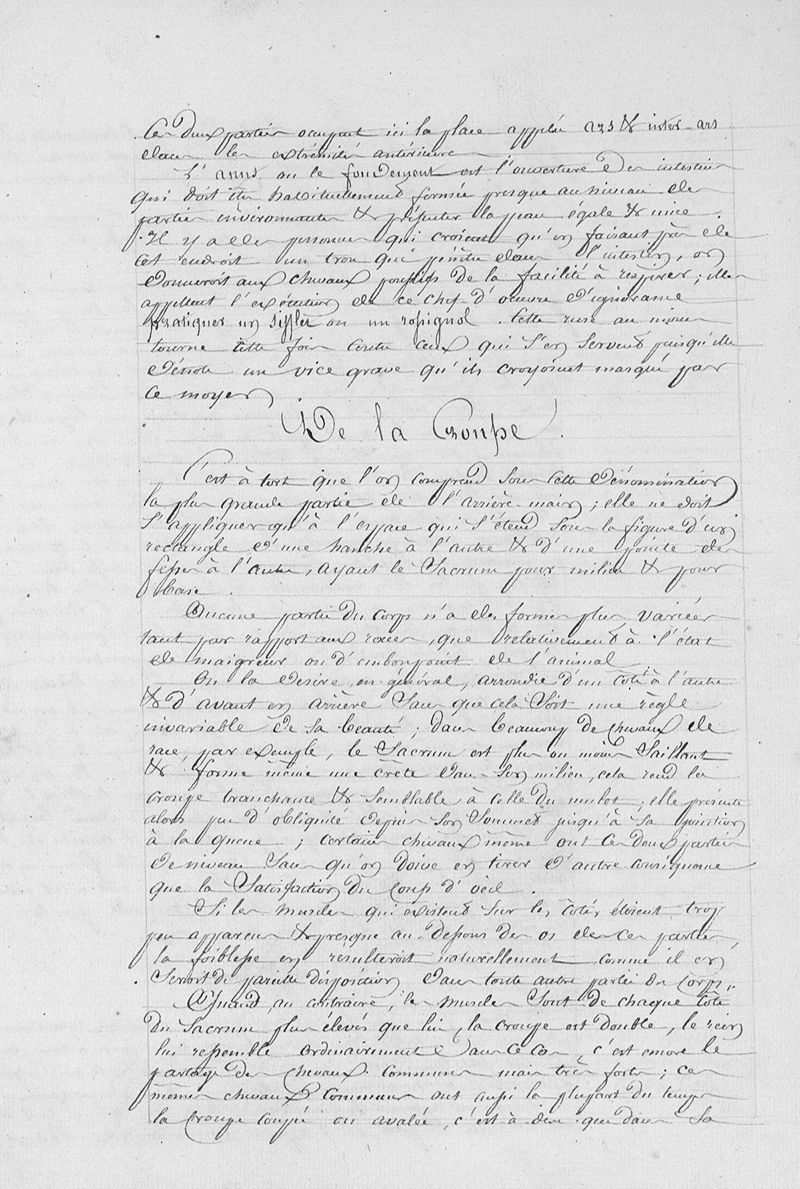 Ces deux parties occupent ici la place appelée ars & inter-ars
dans les extrémités antérieures
L'anus ou le fondement est l'ouverture des intestins
qui doit être habituellement fermée presque au niveau des
parties environnantes & présenter la peau égale & unie.
Il y a des personnes qui croient qu'en faisant près de
cet endroit un trou qui pénètre dans l'intestin, on
donneroit aux chevaux poussifs de la facilité à respirer; elles
appellent l'exécution de ce chef d'œuvre d'ignorance
pratiquer un sifflet ou un rossignol. Cette ruse au moins
tourne cette fois contre ceux qui s'en servent puisqu'elle
dénote un vice grave qu'ils croyoient masqué par
ce moyen.
De la Croupe.
C'est à tort que l'on comprend sous cette dénomination
la plus grande partie de l'arrière-main; elle ne doit
s'appliquer qu'à l'espace qui s'étend sous la figure d'un
rectangle d'une hanche à l'autre & d'une pointe des
fesses à l'autre, ayant le Sacrum pour milieu & pour
base.
Aucune partie du corps n'a des formes plus variées
tant par rapport aux races, que relativement à l'état
de maigreur ou d'embonpoint de l'animal
On la désire, en général, arrondie d'un côté à l'autre
& d'avant en arrière sans que cela soit une règle
invariable de sa beauté; dans beaucoup de chevaux de
race, par exemple, le Sacrum est plus ou moins saillant
& forme même une crète dans son milieu, cela rend la
croupe tranchante & semblable à celle du mulet; elle présente
alors peu d'obliquité depuis son sommet jusqu'à sa jonction
à la queue; certains chevaux même ont ces deux parties
de niveau sans qu'on doive en tirer d'autre conséquence
que la satisfaction du coup d'œil.
Si les muscles qui existent sur les côtés étoient trop
peu apparens & presque au-dessous des os de ces parties,
la foiblesse en résulteroit naturellement comme il en
seroit de pareille disposition dans toute autre partie du corps.
Quand, au contraire, les muscles sont de chaque côté
du Sacrum plus élevés que lui, la croupe est double, le rein
lui ressemble ordinairement dans ce cas, c'est encore le
partage des chevaux communs mais très forts; ces
mêmes chevaux communs ont aussi la plupart du temps
la croupe coupée ou avalée, c'est à dire que dans sa